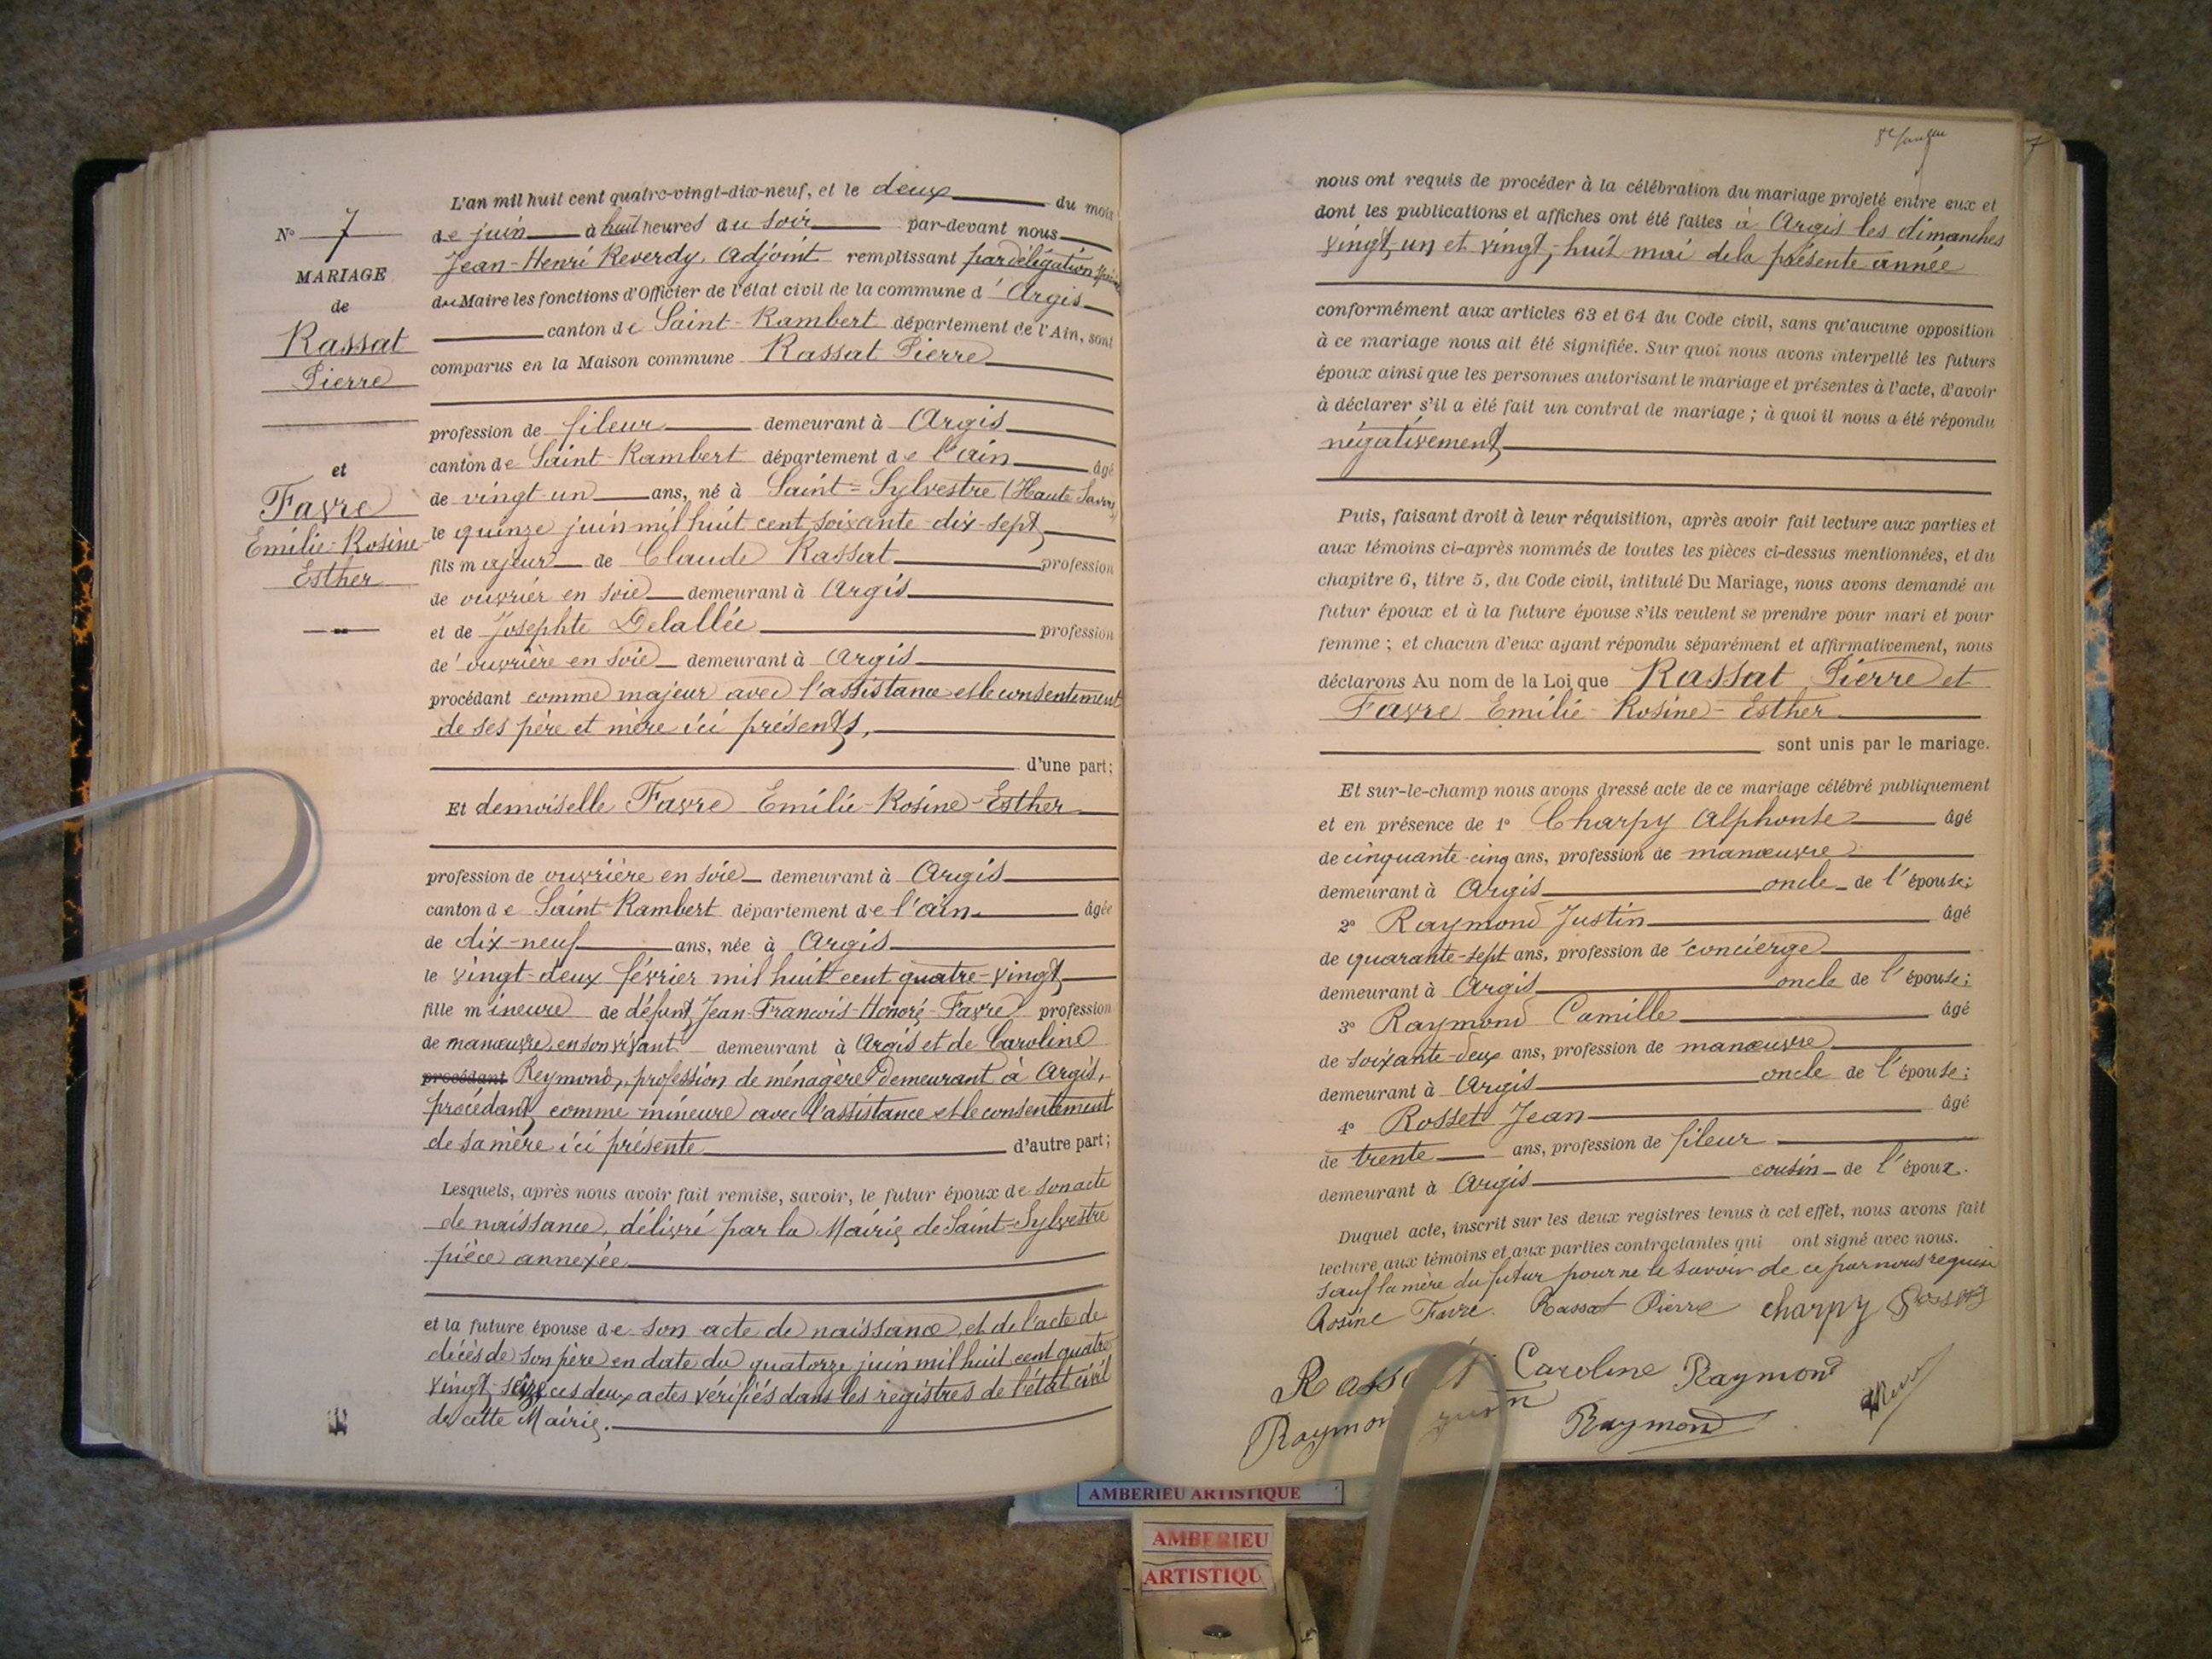 N° 7
MARIAGE
de
Rassat
Pierre
et
Favre
Emilie-Rosine-
Esther
L'an mil huit cent quatre-vingt-dix-neuf, et le deux du mois
de juin à huit heures du soir par-devant nous
Jean-Henri Reverdy, Adjoint remplissant par délégation
du Maire les fonctions d'Officier de l'état civil de la commune d'Argis
canton de Saint-Rambert département de l'Ain, sont
comparus en la Maison commune Rassat Pierre
profession de fileur demeurant à Argis
canton de Saint-Rambert département de l'ain âgé
de vingt-un ans, né à Saint=Sylvestre (Haute Savoie)
le quinze juin mil huit cent soixante-dix-sept
fils majeur de Claude Rassat profession
de ouvrier en soie demeurant à Argis
et de Josephte Delallée profession
de' ouvrière en soie demeurant à Argis
procédant comme majeur avec l'assistance et le consentement
de ses père et mère ici présents,
d'une part;
Et demoiselle Favre Emilie-Rosine-Esther
profession de ouvrière en soie demeurant à Argis
canton de Saint-Rambert département de l'ain âgée
de dix-neuf ans, née à Argis
le vingt-deux février mil huit cent quatre-vingt
fille mineure de défunt Jean-Francois-Honoré-Favre profession
de manœuvre, en son vivant demeurant à Argis et de Caroline
procédant Reymond, profession de ménagère demeurant à Argis,
procédant comme mineure avec l'assistance et le consentement
de sa mère ici présente d'autre part;
Lesquels, après nous avoir fait remise, savoir, le futur époux de son acte
de naissance, délivré par la Mairie de Saint=Sylvestre
pièce annexée
et la future épouse de son acte de naissance, et de l'acte de
décès de son père en date du quatorze juin mil huit cent quatre
vingt-seize ces deux actes vérifiés dans les registres de l'état civil
de cette Mairie.
7
nous ont requis de procéder à la célébration du mariage projeté entre eux et
dont les publications et affiches ont été faites à Argis les dimanches
vingt-un et vingt-huit mai de la présente année
conformément aux articles 63 et 64 du Code civil, sans qu'aucune opposition
à ce mariage nous ait été signifiée. Sur quoi nous avons interpellé les futurs
époux ainsi que les personnes autorisant le mariage et présentes à l'acte, d'avoir
à déclarer s'il a été fait un contrat de mariage ; à quoi il nous a été répondu
négativement
Puis, faisant droit à leur réquisition, après avoir fait lecture aux parties et
aux témoins ci-après nommés de toutes les pièces ci-dessus mentionnées, et du
chapitre 6, titre 5, du Code civil, intitulé Du Mariage, nous avons demandé au
futur époux et à la future épouse s'ils veulent se prendre pour mari et pour
femme ; et chacun d'eux ayant répondu séparément et affirmativement, nous
déclarons Au nom de la Loi que Rassat Pierre et
Favre Emilie-Rosine-Esther
sont unis par le mariage.
Et sur-le-champ nous avons dressé acte de ce mariage célébré publiquement
et en présence de 1° Charpy Alphonse âgé
de cinquante-cinq ans, profession de manœuvre
demeurant à Argis oncle de l'épouse;
2° Raymond Justin âgé
de quarante-sept ans, profession de concierge
demeurant à Argis oncle de l'épouse;
3° Raymond Camille âgé
de soixante-deux ans, profession de manœuvre
demeurant à Argis oncle de l'épouse;
4° Rosset Jean âgé
de trente ans, profession de fileur
demeurant à Argis cousin de l'époux.
Duquel acte, inscrit sur les deux registres tenus à cet effet, nous avons fait
lecture aux témoins et aux parties contractantes qui ont signé avec nous.
sauf la mère du futur pour ne le savoir de ce par nous requise
Rosine Favre. Rassat Pierre Charpy Rosset
Rassat Caroline Raymond
Raymond Raymond
AMBERIEU ARTISTIQUE
AMBERIEU
ARTISTIQU